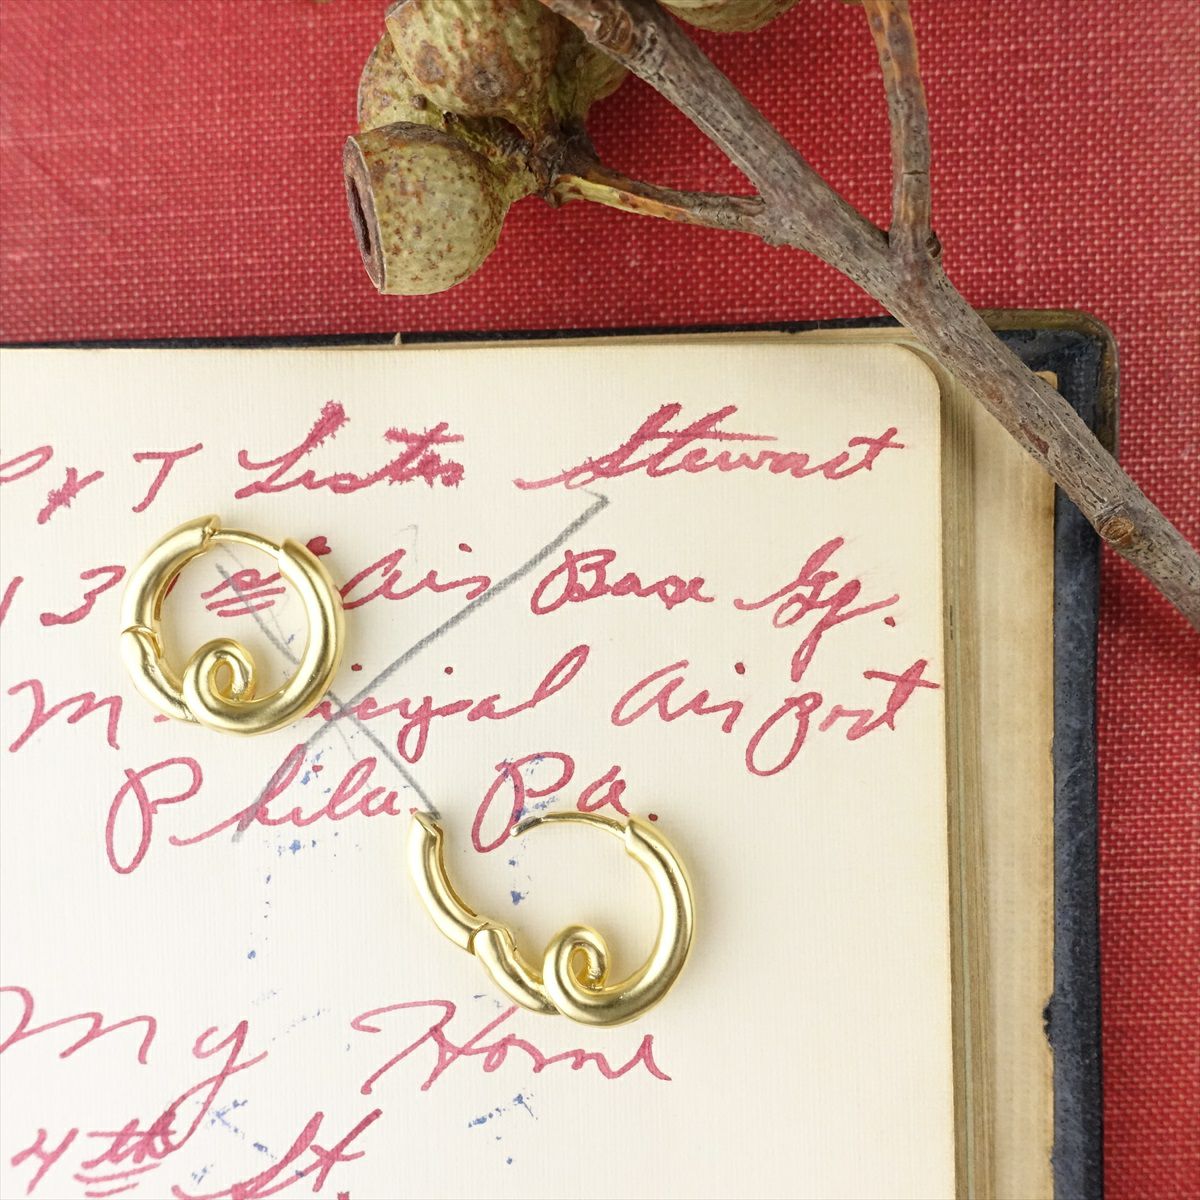 Pvt Lester Stewart
43 rd Air Base Sq.
Municipal Airport
Phila. Pa.
My Home
4th St.